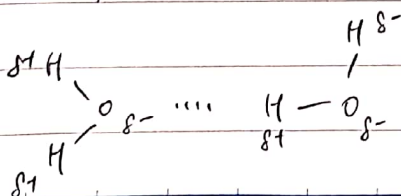 H δ-
δ+ H
O δ- .... H — O
δ+ δ-
H
δ+